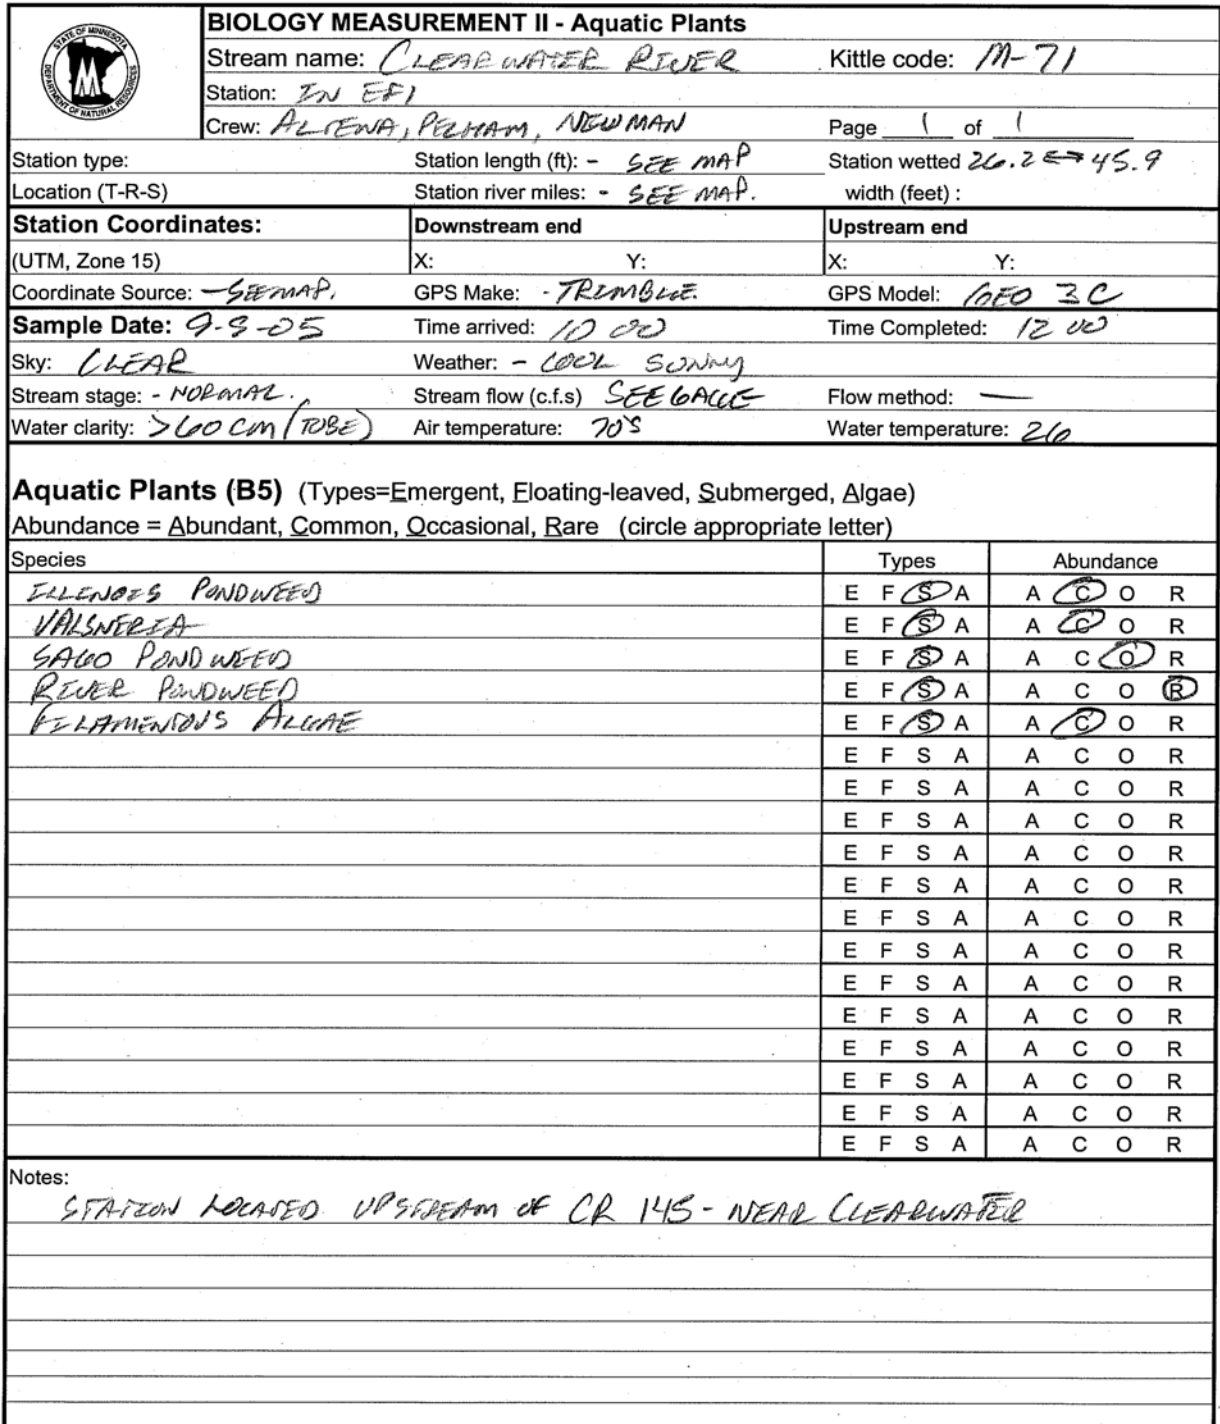 STATE OF MINNESOTA
DEPARTMENT OF NATURAL RESOURCES
BIOLOGY MEASUREMENT II - Aquatic Plants
Stream name: CLEARWATER RIVER Kittle code: M-71
Station: IN EFI
Crew: ALTENA, PELHAM, NEWMAN Page 1 of 1
Station type: Station length (ft): - SEE MAP Station wetted 26.2 ↔ 45.9
Location (T-R-S) Station river miles: - SEE MAP. width (feet) :
Station Coordinates: Downstream end Upstream end
(UTM, Zone 15) X: Y: X: Y:
Coordinate Source: - SEE MAP. GPS Make: - TRIMBLE. GPS Model: GEO 3C
Sample Date: 9-8-05 Time arrived: 10 00 Time Completed: 12 00
Sky: CLEAR Weather: - COOL SUNNY
Stream stage: - NORMAL. Stream flow (c.f.s) SEE GAGE Flow method: —
Water clarity: >60 cm (TUBE) Air temperature: 70's Water temperature: 26
Aquatic Plants (B5) (Types=Emergent, Floating-leaved, Submerged, Algae)
Abundance = Abundant, Common, Occasional, Rare (circle appropriate letter)
Species Types Abundance
ILLENOIS PONDWEED E F S A A C O R
VALSNERIA E F S A A C O R
SAGO PONDWEED E F S A A C O R
RIVER PONDWEED E F S A A C O R
FILAMENTOUS ALGAE E F S A A C O R
E F S A A C O R
E F S A A C O R
E F S A A C O R
E F S A A C O R
E F S A A C O R
E F S A A C O R
E F S A A C O R
E F S A A C O R
E F S A A C O R
E F S A A C O R
E F S A A C O R
E F S A A C O R
E F S A A C O R
Notes:
STATION LOCATED UPSTREAM OF CR 145 - NEAR CLEARWATER